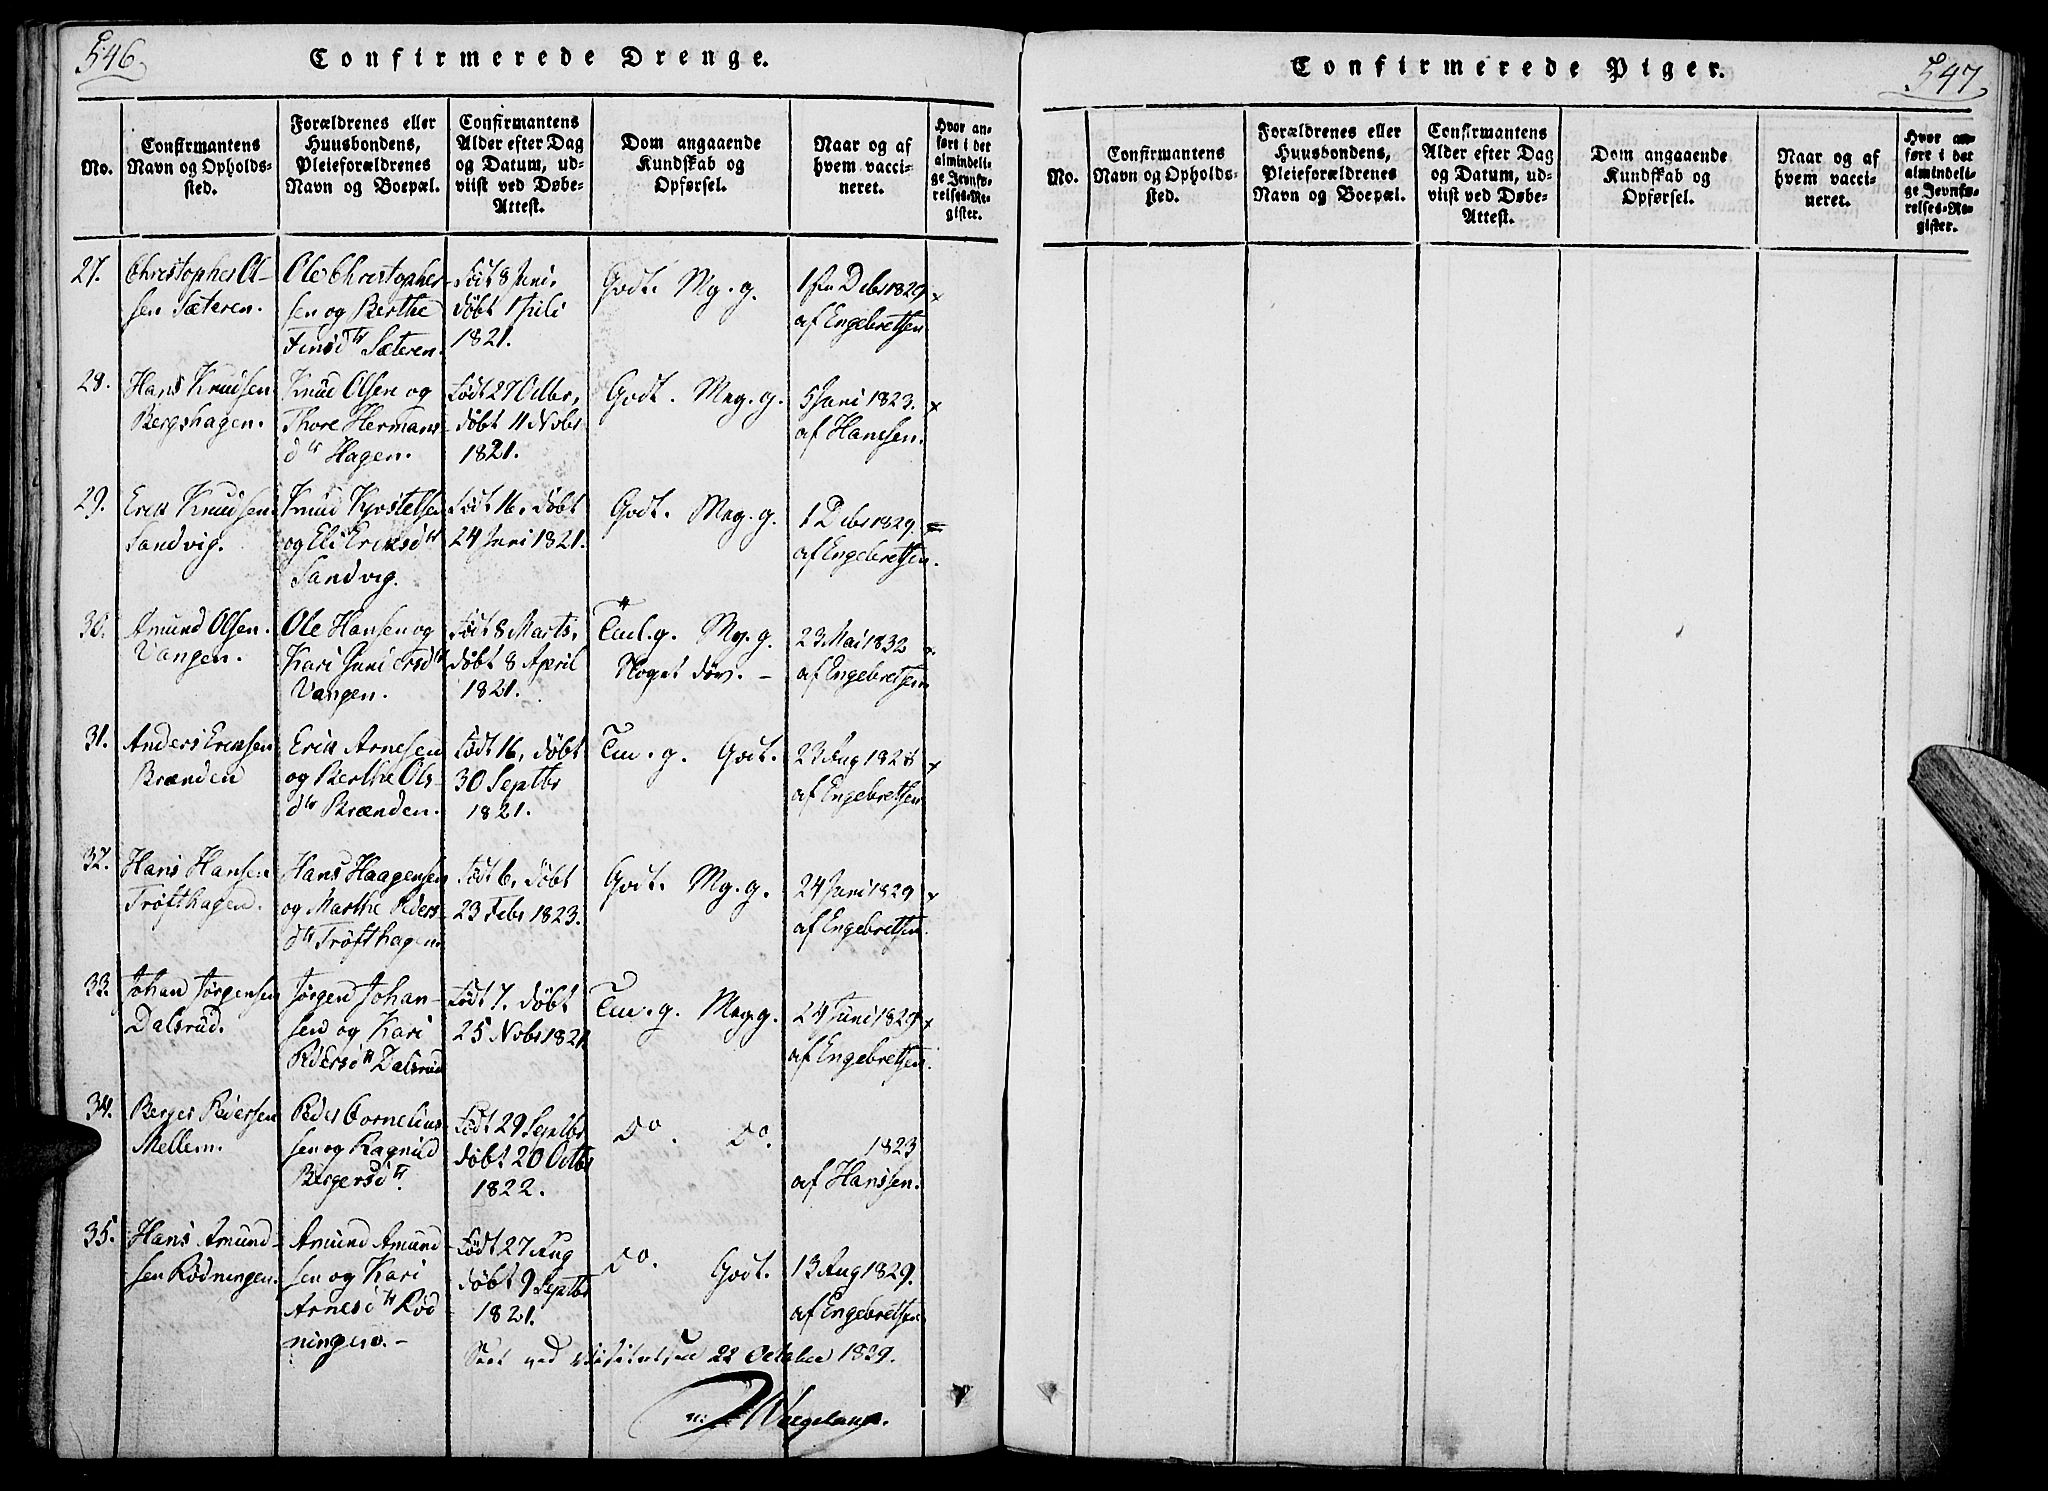 546.
Confirmerede Drenge.
No.
Confirmantens
Navn og Opholds-
sted.
Forældrenes eller
Huusbondens,
Pleieforældrenes
Navn og Boepæl.
Confirmantens
Alder efter Dag
og Datum, ud-
viist ved Døbe-
Attest.
Dom angaaende
Kundskab og
Opførsel.
Naar og af
hvem vacci-
neret.
Hvor an-
ført i det
almindeli-
ge Jevnfø-
relses-Re-
gister.
27.
Christopher Ol-
sen Sæteren.
Ole Christopher-
sen og Berthe
Finsdtr Sæteren.
Født 8 Juni,
døbt 1 Juli
1821.
Godt. Mg. g.
1ste Debr 1829
af Engebretsen
x
28.
Hans Knudsen
Bergshagen.
Knud Olsen og
Thore Hermans
dtr Hagen.
Født 27 Octbr,
døbt 11 Novbr
1821.
Godt. Meg. g.
5 Juni 1823.
af Hansen.
x
29.
Erik Knudsen
Sandvig.
Knud Kjostelsen
og Eli Eriksdtr
Sandvig.
Født 16, døbt
24 Juni 1821.
Godt. Meg. g.
1 Debr 1829.
af Engebretsen.
30.
Amund Olsen.
Vangen.
Ole Hansen og
Kari Gunersdtr
Vangen.
Født 8 Marts,
døbt 8 April
1821.
Tml. g. Mg. g
Noget døv. -
23 Mai 1832
af Engebretsen
31.
Anders Eriksen
Brænden
Erik Arnesen
og Berthe Ols-
dtr Brænden.
Født 16, døbt
30 Septbr
1821.
Tm. g. Godt.
23 Aug 1828
af Engebretsen
x
32.
Hans Hansen
Trøfthagen.
Hans Haagensen
og Marthe Peders-
dtr Trøfthagen
Født 6, døbt
23 Febr 1823.
Godt. Mg. g.
24 Juni 1829
af Engebretsen.
x
33.
Johan Jørgensen
Dalsrud.
Jørgen Johan-
sen og Kari
Pedersdtr Dalsrud
Født 7. døbt
25 Novbr 1821
Tm. g. Meg. g.
24 Juni 1829
af Engebretsen.
x
34.
Berger Pedersen
Mellem.
Peder Cornelius
sen og Ragnild
Bergersdtr.
Født 29 Septbr
døbt 20 Octbr
1822.
Do. Do.
1823
af Hanssen.
35.
Hans Amund-
sen Rødningen.
Amund Amund
sen og Kari
Arnesdtr Rød
ningen. -
Født 27 Aug
døbt 9 Septbr
1821.
Do. Godt.
13 Aug 1829.
af Engebretsen
Seet ved Visitatsen 22 October 1839.
Wergeland.
Confirmerede Piger.
547
No.
Confirmantens
Navn og Opholds-
sted.
Forældrenes eller
Huusbondens,
Pleieforældrenes
Navn og Boepæl.
Confirmantens
Alder efter Dag
og Datum, ud-
viist ved Døbe-
Attest.
Dom angaaende
Kundskab og
Opførsel.
Naar og af
hvem vacci-
neret.
Hvor an-
føre i det
almindeli-
ge Jevnfø-
relses-Re-
gister.